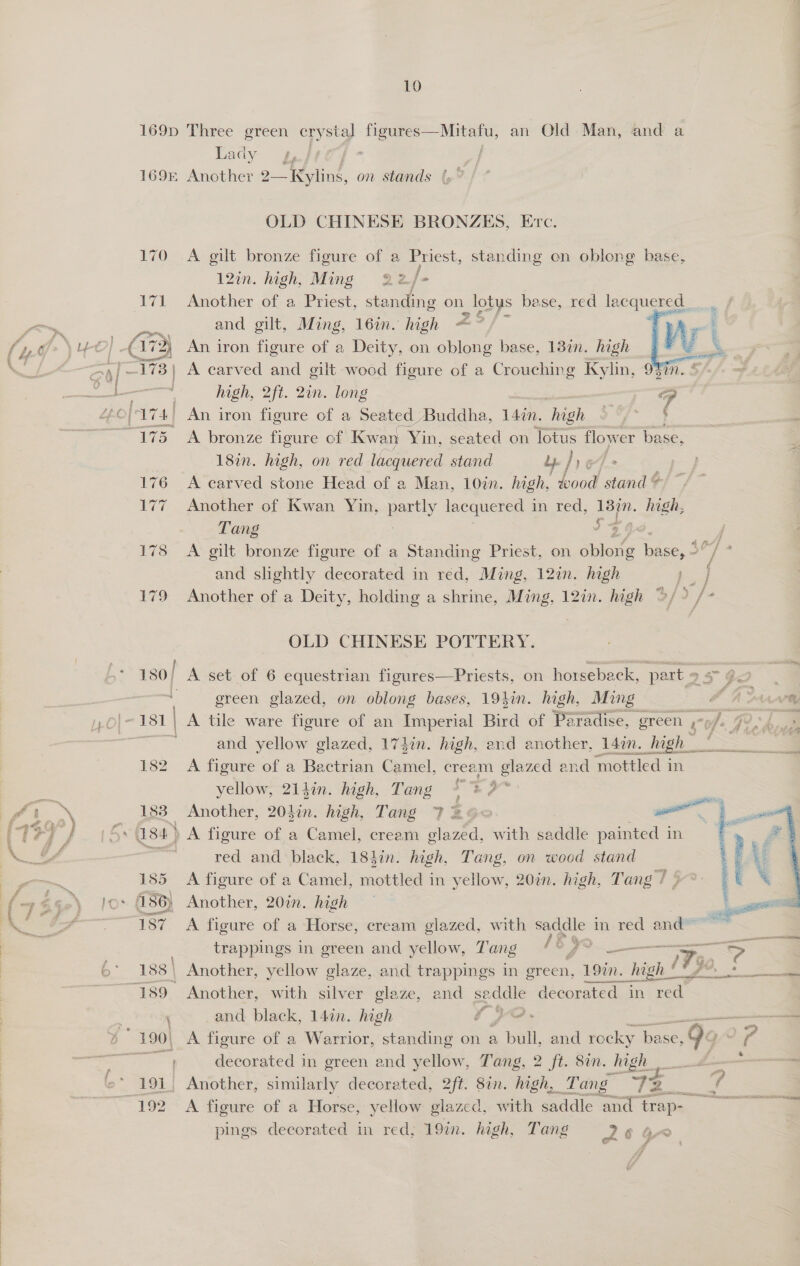 10
169D Three green crystal figures—Mitafu, an Old Man, and a
Lady
169E Another 2—Kylins, on stands
OLD CHINESE BRONZES, Etc.
170 A gilt bronze figure of a Priest, standing on oblong base,
12in. high, Ming 22/-
171 Another of a Priest, standing on lotus base, red lacquered
and gilt, Ming, 16in. high
172 An iron figure of a Deity, on oblong base, 13in. high
173 A carved and gilt wood figure of a Crouching Kylin, 9½in.
high, 2ft. 2in. long
174 An iron figure of a Seated Buddha, 14in. high
175 A bronze figure of Kwan Yin, seated on lotus flower base,
18in. high, on red lacquered stand
176 A carved stone Head of a Man, 10in. high, wood stand
177 Another of Kwan Yin, partly lacquered in red, 13in. high,
Tang
178 A gilt bronze figure of a Standing Priest, on oblong base,
and slightly decorated in red, Ming, 12in. high
179 Another of a Deity, holding a shrine, Ming, 12in. high
OLD CHINESE POTTERY.
180 A set of 6 equestrian figures—Priests, on horseback, part
green glazed, on oblong bases, 19½in. high, Ming
181 A tile ware figure of an Imperial Bird of Paradise, green
and yellow glazed, 17½in. high, and another, 14in. high
182 A figure of a Bactrian Camel, cream glazed and mottled in
yellow, 21½in. high, Tang
183 Another, 20½in. high, Tang
184 A figure of a Camel, cream glazed, with saddle painted in
red and black, 18½in. high, Tang, on wood stand
185 A figure of a Camel, mottled in yellow, 20in. high, Tang
186 Another, 20in. high
187 A figure of a Horse, cream glazed, with saddle in red and
trappings in green and yellow, Tang
188 Another, yellow glaze, and trappings in green, 19in. high
189 Another, with silver glaze, and saddle decorated in red
and black, 14in. high
190 A figure of a Warrior, standing on a bull, and rocky base,
decorated in green and yellow, Tang, 2 ft. 8in. high
191 Another, similarly decorated, 2ft. 8in. high, Tang
192 A figure of a Horse, yellow glazed, with saddle and trap-
pings decorated in red, 19in. high, Tang